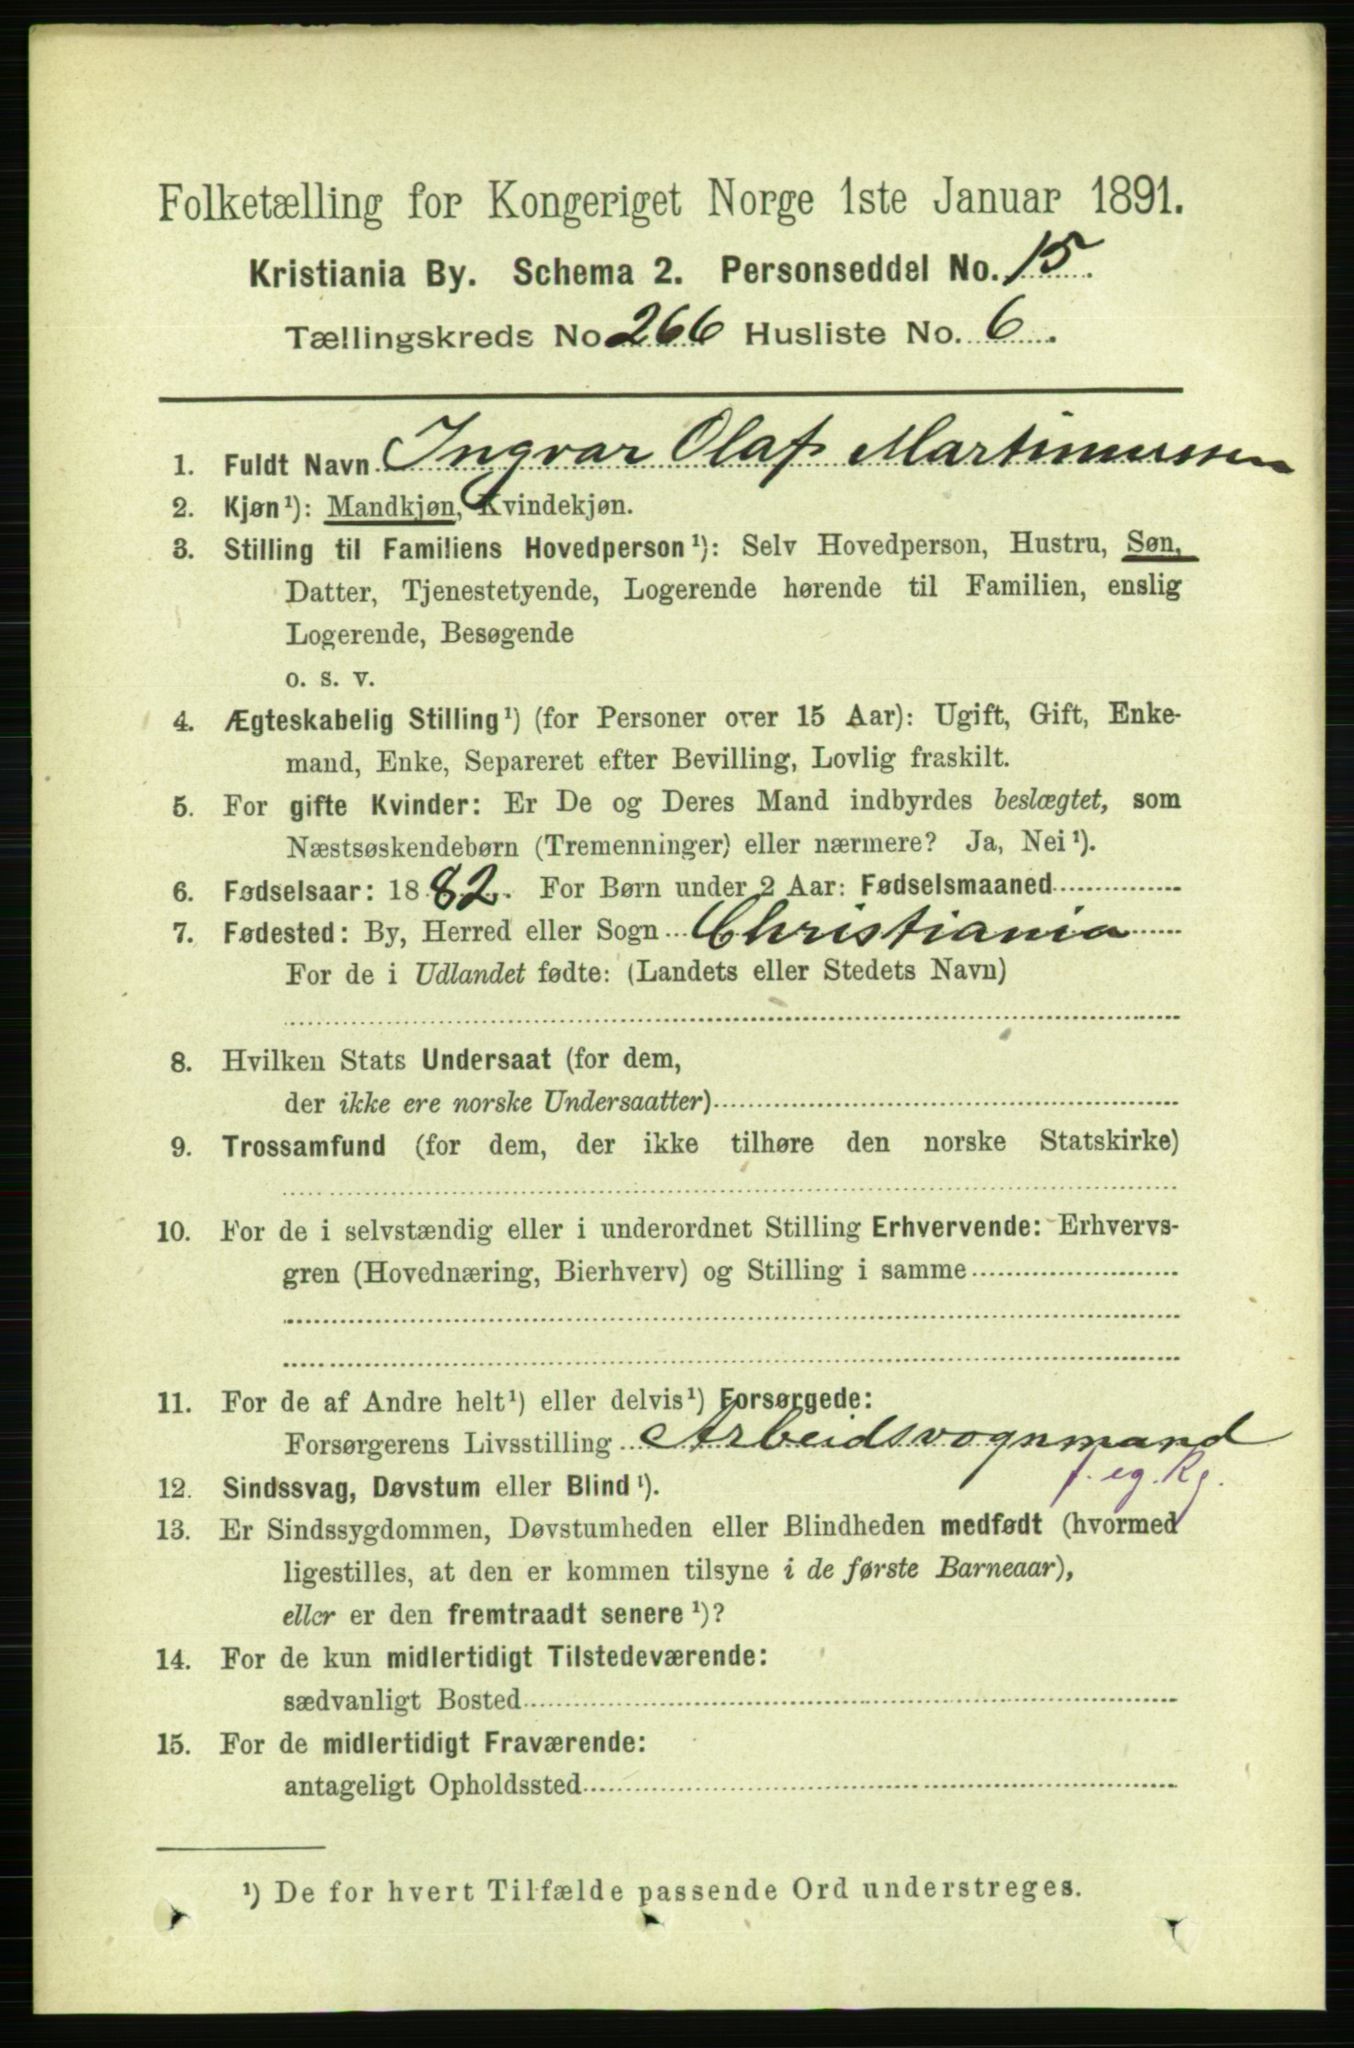 Folketælling for Kongeriget Norge 1ste Januar 1891.
Kristiania By. Schema 2. Personseddel No. 15.
Tællingskreds No 266 Husliste No. 6.
1. Fuldt Navn Ingvar Olaf Martinussen
2. Kjøn¹): Mandkjøn, Kvindekjøn.
3. Stilling til Familiens Hovedperson¹): Selv Hovedperson, Hustru, Søn,
Datter, Tjenestetyende, Logerende hørende til Familien, enslig
Logerende, Besøgende
o. s. v.
4. Ægteskabelig Stilling¹) (for Personer over 15 Aar): Ugift, Gift, Enke-
mand, Enke, Separeret efter Bevilling, Lovlig fraskilt.
5. For gifte Kvinder: Er De og Deres Mand indbyrdes beslægtet, som
Næstsøskendebørn (Tremenninger) eller nærmere? Ja, Nei¹).
6. Fødselsaar: 1882. For Børn under 2 Aar: Fødselsmaaned
7. Fødested: By, Herred eller Sogn Christiania
For de i Udlandet fødte: (Landets eller Stedets Navn)
8. Hvilken Stats Undersaat (for dem,
der ikke ere norske Undersaatter)
9. Trossamfund (for dem, der ikke tilhøre den norske Statskirke)
10. For de i selvstændig eller i underordnet Stilling Erhvervende: Erhvervs-
gren (Hovednæring, Bierhverv) og Stilling i samme
11. For de af Andre helt¹) eller delvis¹) Forsørgede:
Forsørgerens Livsstilling Arbeidsvognmand
f. eg. Rg.
12. Sindssvag, Døvstum eller Blind¹).
13. Er Sindssygdommen, Døvstumheden eller Blindheden medfødt (hvormed
ligestilles, at den er kommen tilsyne i de første Barneaar),
eller er den fremtraadt senere¹)?
14. For de kun midlertidigt Tilstedeværende:
sædvanligt Bosted
15. For de midlertidigt Fraværende:
antageligt Opholdssted
¹) De for hvert Tilfælde passende Ord understreges.